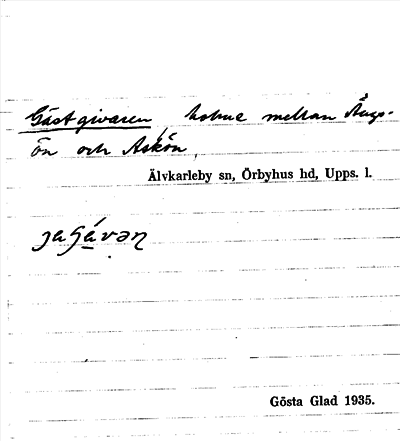 Gästgivaren, holme mellan Ängs-
ön och Askön,
Älvkarleby sn, Örbyhus hd, Upps. l.
Gösta Glad 1935.